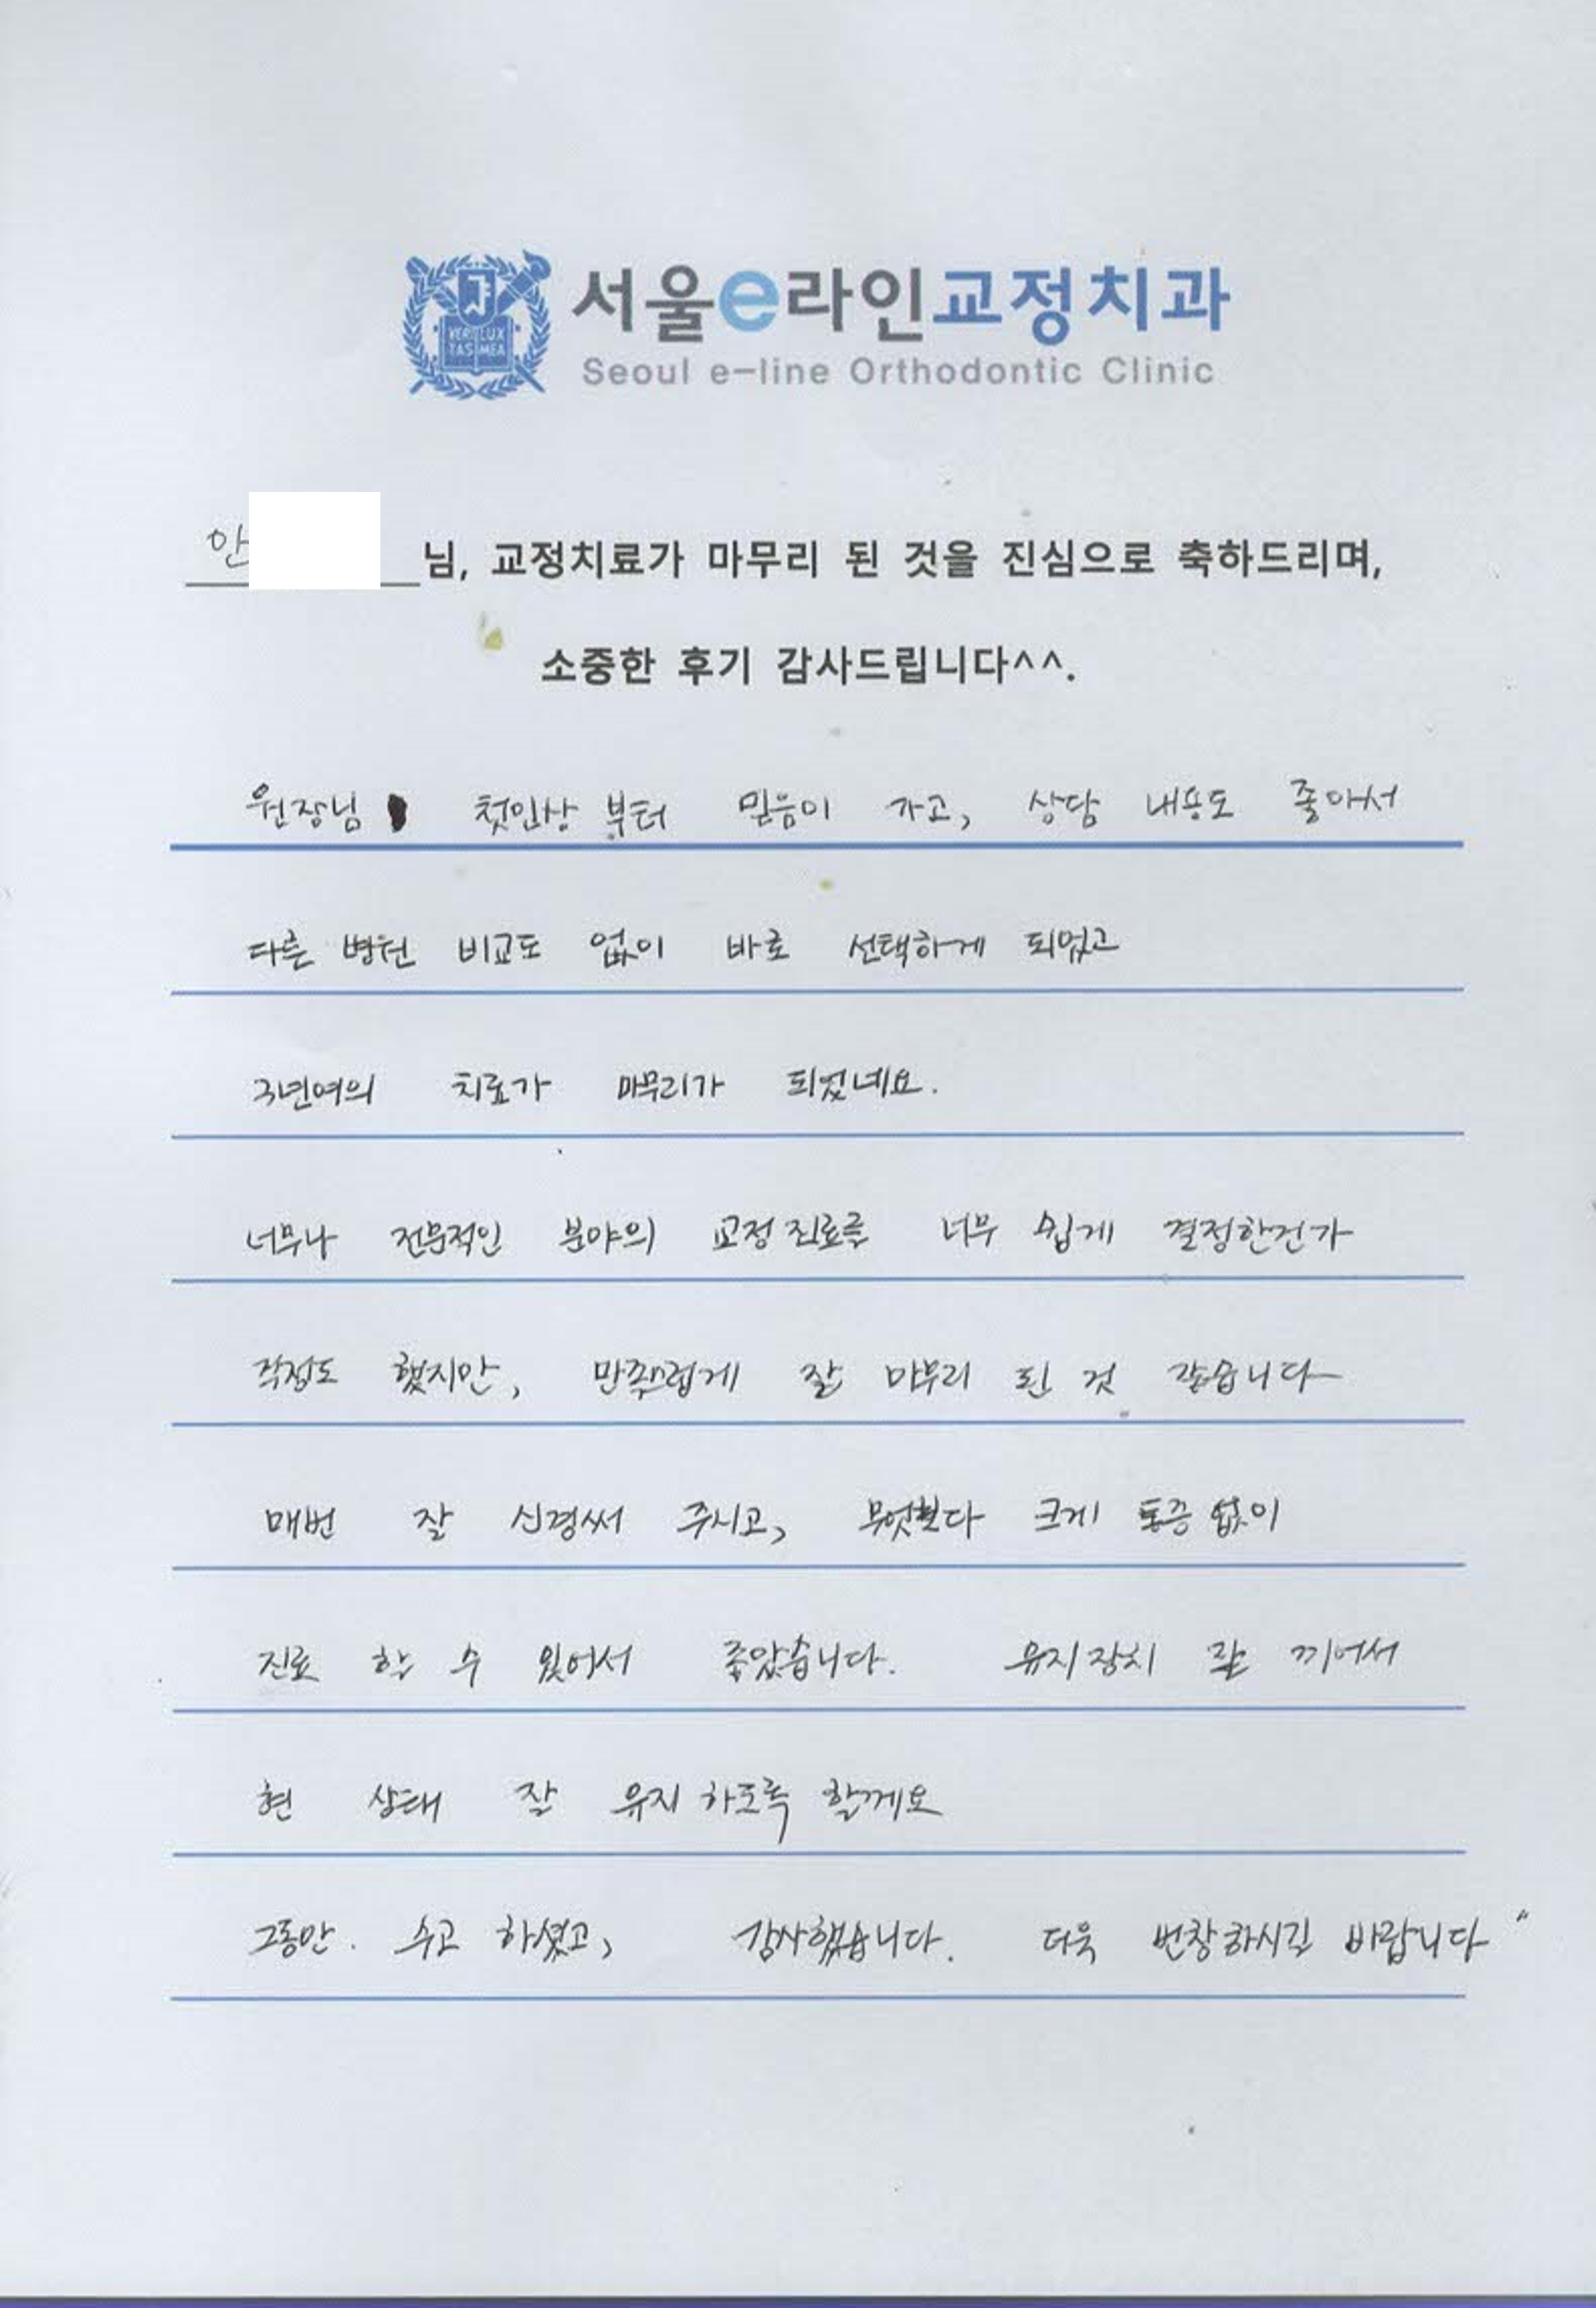 VERI LUX
TAS MEA
서울e라인교정치과
Seoul e-line Orthodontic Clinic
안 님, 교정치료가 마무리 된 것을 진심으로 축하드리며,
소중한 후기 감사드립니다^^.
원장님 첫인상 부터 믿음이 가고, 상담 내용도 좋아서
다른 병원 비교도 없이 바로 선택하게 되었고
3년여의 치료가 마무리가 되었네요.
너무나 전문적인 분야의 교정 진료를 너무 쉽게 결정한건가
걱정도 했지만, 만족스럽게 잘 마무리 된 것 같습니다
매번 잘 신경써 주시고, 무엇보다 크게 통증 없이
진료 할 수 있어서 좋았습니다. 유지장치 잘 끼어서
현 상태 잘 유지 하도록 할께요
그동안. 수고 하셨고, 감사했습니다. 더욱 번창하시길 바랍니다"